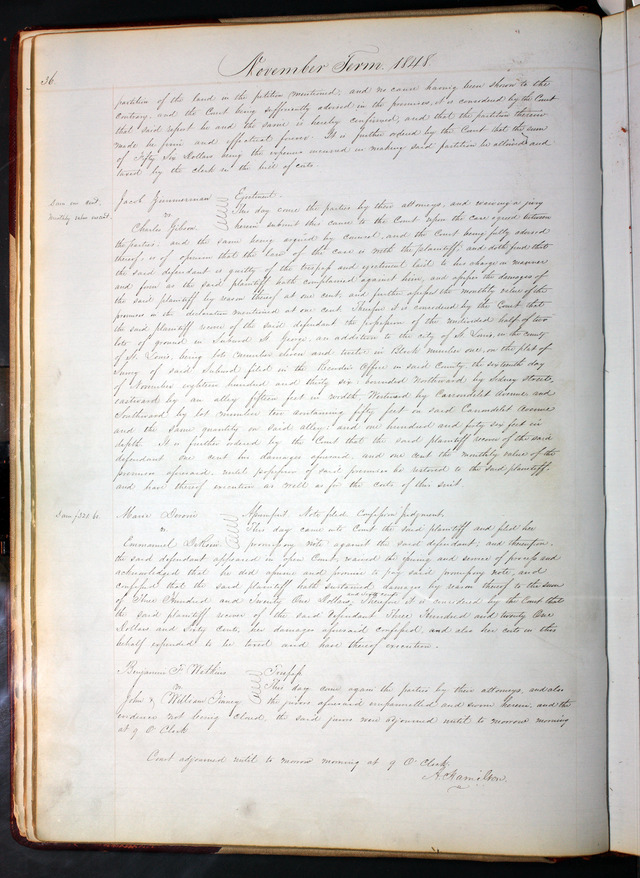 36
November Term 1848.
partition of the land in the petition mentioned; and no cause having been shown to the
contrary, and the Court being sufficiently advised in the premises, it is considered by the Court
that said report be and the same is hereby confirmed, and that the partition therein
made be firm and effectual forever. It is further ordered by the Court that the sum
of Fifty Six Dollars being the expenses incurred in making said partition be allowed and
taxed by the clerk in the bill of costs.
Jacob Zimmerman
vs
Charles Gibson
Dam one cent.
Monthly value one cent.
Ejectment.
This day come the parties by their attorneys, and waiving a jury
herein submit this cause to the Court upon the case agreed between
the parties; and the same being argued by counsel, and the Court being fully advised
thereof, is of opinion that the law of the case is with the plaintiff, and doth find that
the said defendant is guilty of the trespass and ejectment laid to his charge in manner
and form as the said plaintiff hath complained against him, and assess the damages of
the said plaintiff by reason thereof at one cent, and further assess the monthly value of the
premises in the declaration mentioned at one cent. Therefore it is considered by the Court that
the said plaintiff recover of the said defendant the possession of the undivided half of two
lots of ground in Suburb St. George, an addition to the city of St. Louis, in the county
of St. Louis, being lots number eleven and twelve in Block number one, on the plat of
Survey of said Suburb filed in the Recorders Office in said County the sixteenth day
of November eighteen hundred and thirty six, bounded Northward by Sidney Street,
eastward by an alley fifteen feet in width, Westward by Carondelet Avenue and
Southward by lot number ten containing fifty feet on said Carondelet Avenue
and the same quantity on said alley, and one hundred and fifty six feet in
depth. It is further ordered by the Court that the said plaintiff recover of the said
defendant one cent his damages aforesaid, and one cent the monthly value of the
premises aforesaid, until possession of said premises be restored to the said plaintiff
and have thereof execution as well as for the costs of this suit.
Dam $321.60
Marie
vs
Emmanuel
Assumpsit Note filed Confession Judgment.
This day came into Court the said plaintiff and filed her
promissory note against the said defendant, and thereupon
the said defendant appeared in open Court, waived the issuing and service of process and
acknowledged that he did assume and promise to pay said promissory note, and
confessed that the said plaintiff hath sustained damages by reason thereof to the sum
of Three Hundred and Twenty One Dollars, and sixty cents, Therefore it is considered by the Court that
the said plaintiff recover of the said defendant Three Hundred and twenty One
Dollars and Sixty Cents, her damages aforesaid confessed, and also her costs in this
behalf expended to be levied and have thereof execution.
Benjamin F Watkins
vs
John & William Finney
Trespass
This day come again the parties by their attorneys, and also
the jurors aforesaid empannelled and sworn herein, and the
evidence not being closed, the said jurors were adjourned until to morrow morning
at 9 O Clock.
Court adjourned until to morrow morning at 9 O Clock,
A Hamilton.